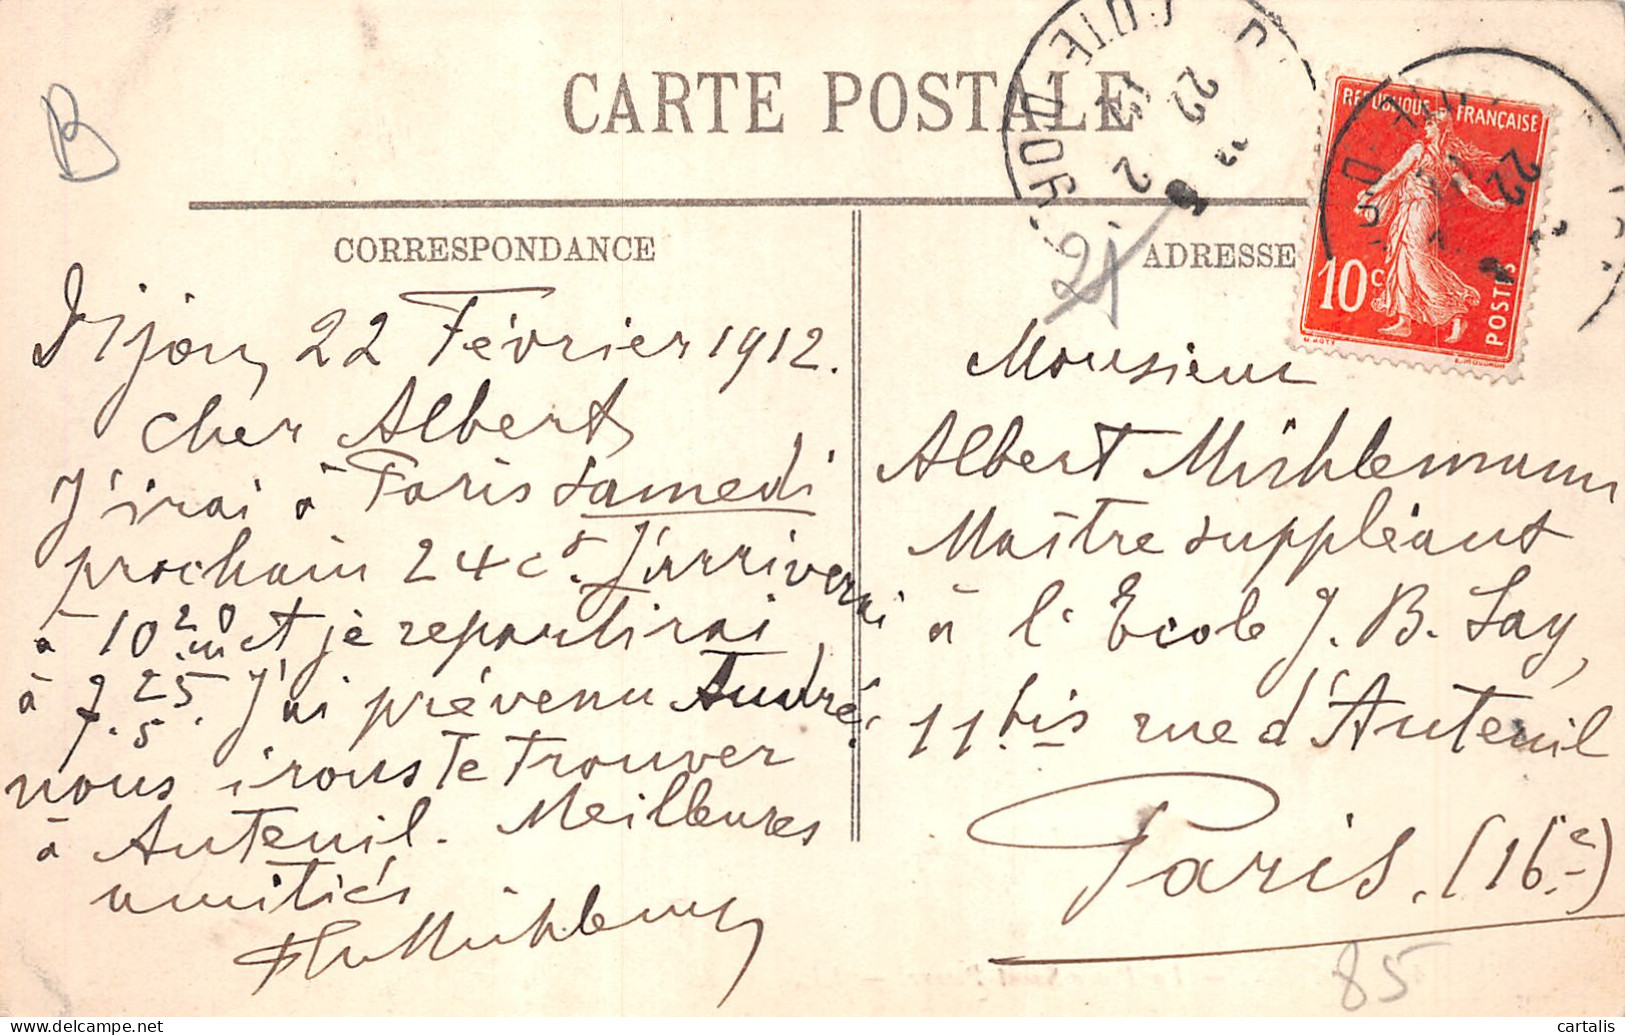 B
CARTE POSTALE
COTE-D'OR
22
12
2
21
RÉPUBLIQUE FRANÇAISE
10c
POSTES
CORRESPONDANCE
Dijon, 22 Février 1912.
cher Albert
J'irai à Paris samedi
prochain 24 ct. J'arriverai
à 10.20 m et je repartirai
à 7.25 s. J'ai prévenu André,
nous irons te trouver
à Auteuil. Meilleures
amitiés
ADRESSE
Monsieur
Albert Mühlemann
Maître suppléant
à l'Ecole J. B. Say,
11 bis rue d'Auteuil
Paris. (16e)
85
cartalis